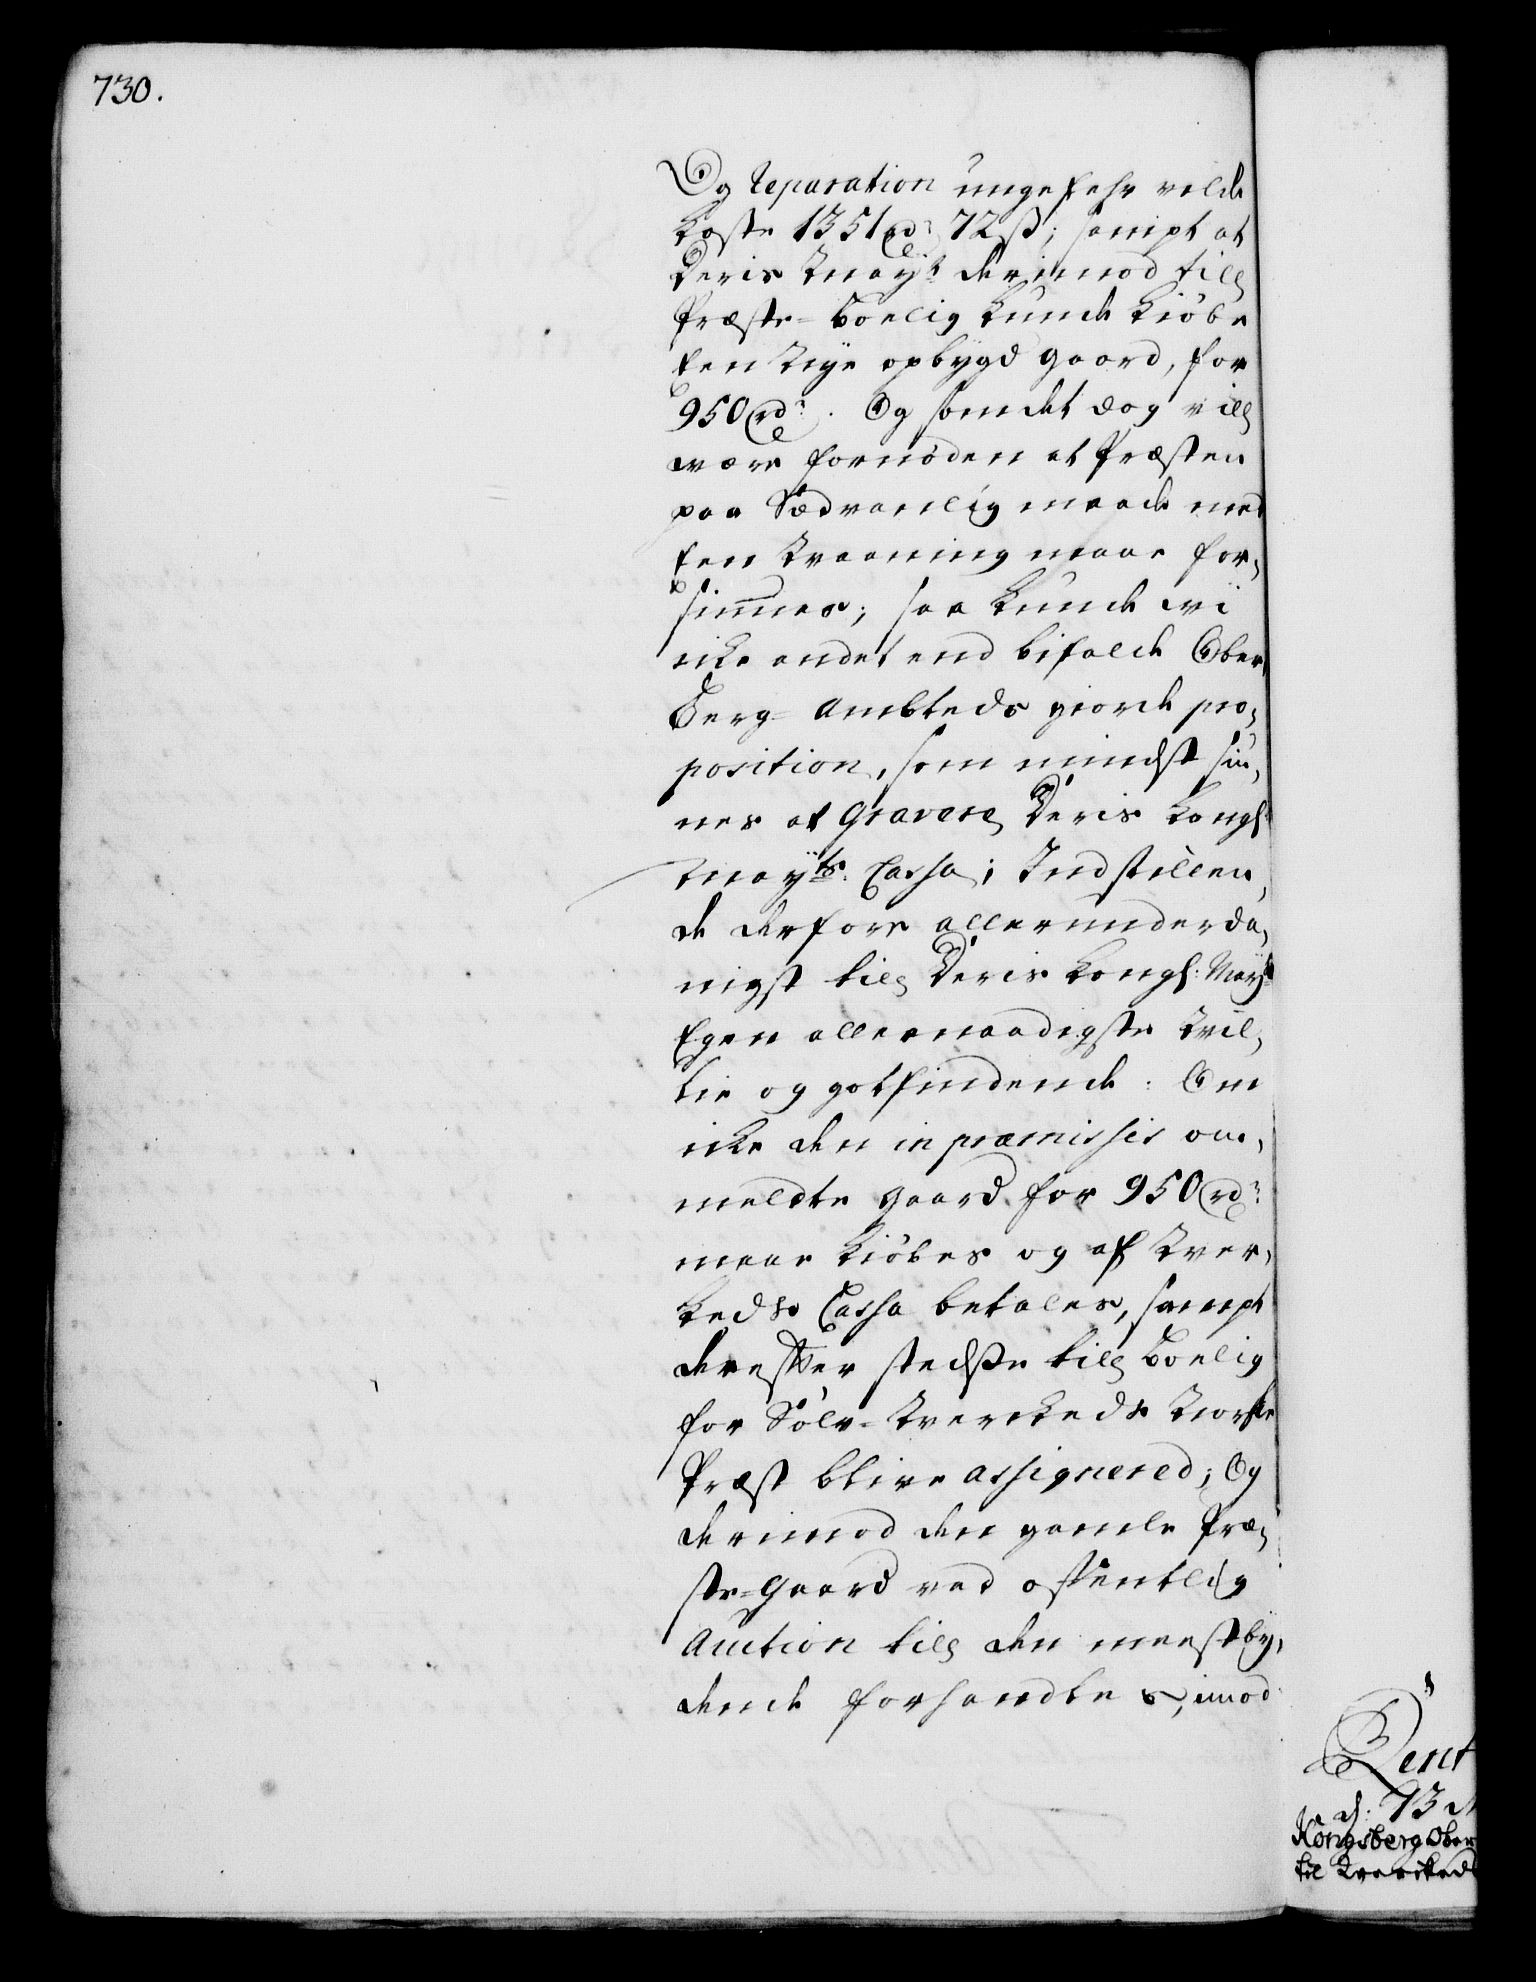 730.
Og Reparation ungefehr vilde
koste 1351 rd: 72 ß; sampt at
Deris Mayt: derimod till
Præste-boelig kunde kiöbe
Een Nye opbygd gaard, for
950 rd:. Og som det dog vill
være fornöden at Præsten
paa Sædvanlig maade med
Een Vaaning maae for,
siunes; saa kunde vi
icke andet end bifalde Ober
Berg-Ambteds giorde pro,
position, som mindst siu,
nes at gravere Deris Kongl:
Mayts: Cassa; Indstillen,
de derfore allerunderda,
nigst till Deris Kongl: Mayts
Egen allernaadigste Vil,
lie og gotfindende: Om
icke den in præmissis om,
meldte gaard for 950 rd:
maae kiöbes og af Ver,
keds Cassa betales, sampt
derefter stedse till boelig
for Sölv-Verckeds Norske
Præst blive assignered; Og
derimod den gamle Præ,
ste-gaard ved offentlig
Auction till den meestby,
dende forhandles, imod
Rent
d: 13
Kongsberg Ober
til Verckeds